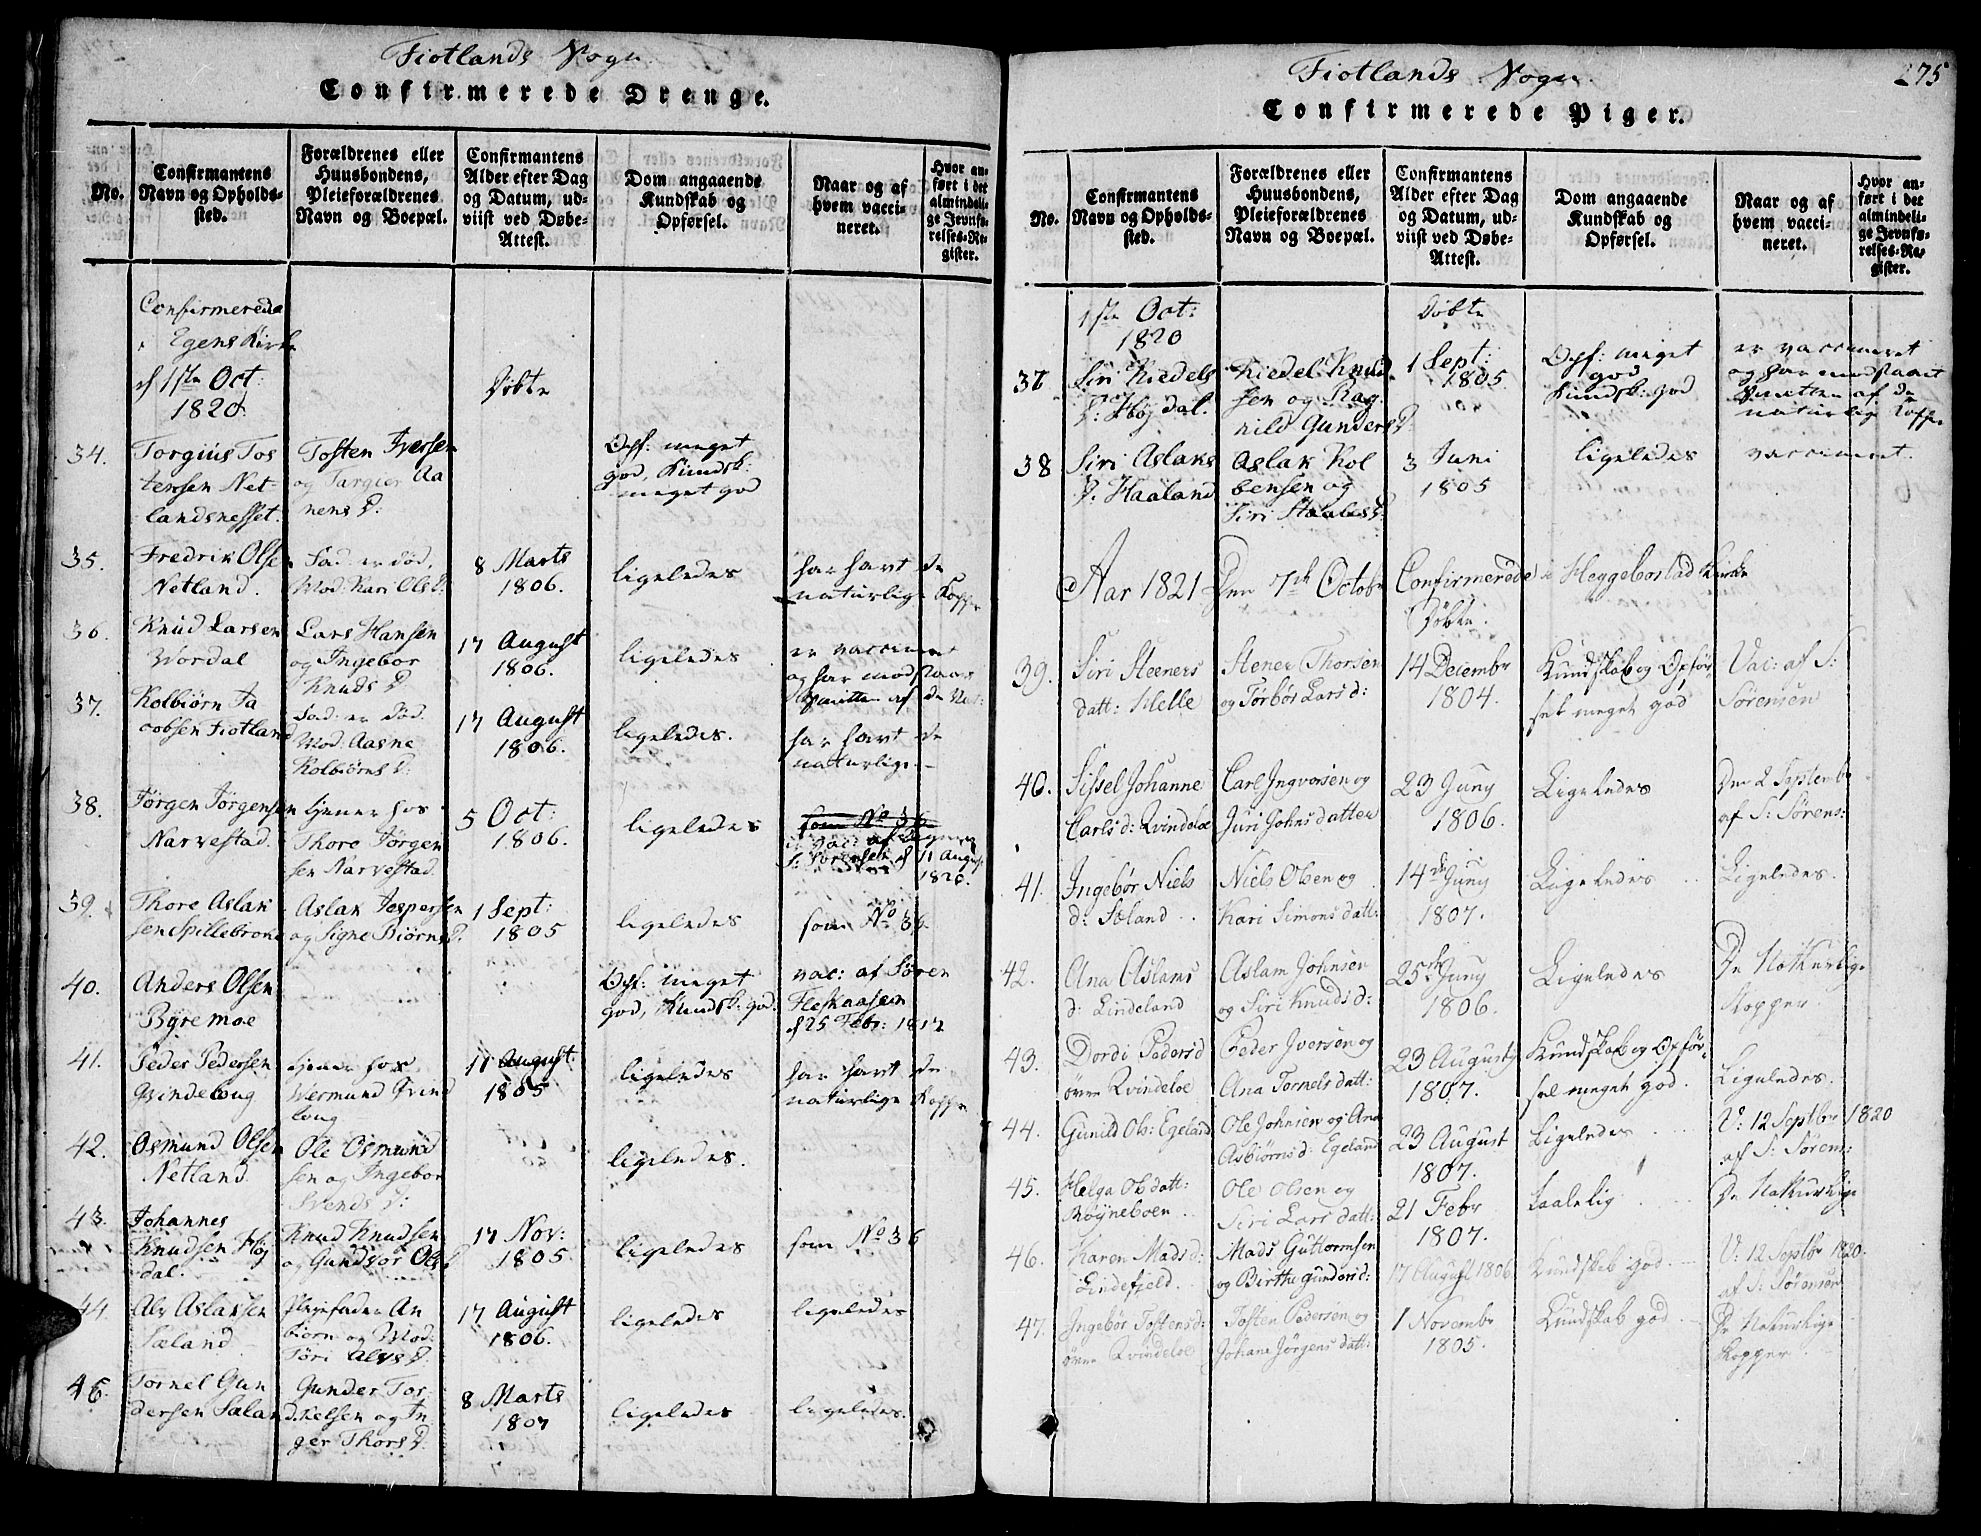 Fiotlands Sogn.
Confirmerede Drenge.
No.
Confirmantens Navn og Opholds-sted.
Forældrenes eller Huusbondens, Pleieforældrenes Navn og Boepæl.
Confirmantens Alder efter Dag og Datum, udviist ved Døbe-Attest.
Dom angaaende Kundskab og Opførsel.
Naar og af hvem vaccineret.
Hvor anført i det almindelige Jevnførelses-Register.
Confirmerede
i Egens Kirke
d 1ste Oct:
1820.
Døbte
34.
Torgius Tos
tensen Net-
landsnesset.
Tosten Iversen
og Targier Aa
nens D:
Opf: meget
god, Kundsk:
meget god
35.
Fredrik Olsen
Netland.
Fad: er død.
Mod: Kari Ols D:
8 Marts
1806.
ligeledes
har havt de
naturlige Kopper
36.
Knud Larsen
Wordal
Lars Hansen
og Ingebor
Knuds D.
17 August
1806.
ligeledes
er vaccineret
og har modstaaet
Smitten af de Nat:
37.
Kolbiørn Ja
cobsen Fiotland
Fad: er død.
Mod: Aasne
Kolbiørns D:
17 August
1806.
ligeledes.
har havt de
naturlige
38.
Jørgen Jørgensen
Narvestad.
tjener hos
Thore Jørgen
sen Narvestad
5 Oct:
1806.
ligeledes
som No 36
vac: af
S: Sørensen d 11 August
1820.
39.
Thore Aslak
sen Spillebrone
Aslak Jespersen
og Signe Biørns D.
1 Sept:
1805
ligeledes
som No 36
40.
Anders Olsen
Byremoe
Opf: meget
god, Kundsk: god:
vac: af Søren
Fleskaasen
d 25 Febr: 1817
41.
Peder Pedersen
Qvindeloug
tjener hos
Wermund Qvind
loug
11 August:
1805
ligeledes
har havt de
naturlige Kopper
42.
Osmund Olsen
Netland
Ole Osmund
sen og Ingebor
Svends D:
ligeledes.
43.
Johannes
Knudsen Høj
dal.
Knud Knudsen
og Gundvor Ols D
17 Nov:
1805
ligeledes
som No 36
44.
Alv Aslaksen
Sæland
Plejefader An
biørn og Mod:
Tøri Alvs D.
17 August
1806.
ligeledes
ligeledes
45.
Tornel Gun
dersen Sæland
Gunder Tor
kelsen og In
ger Thors D.
8 Marts
1807
ligeledes
ligeledes.
Fiotlands Sogn.
275
Confirmerede Piger.
No.
Confirmantens Navn og Opholds-sted.
Forældrenes eller Huusbondens, Pleieforældrenes Navn og Boepæl.
Confirmantens Alder efter Dag og Datum, udviist ved Døbe-Attest.
Dom angaaende Kundskab og Opførsel.
Naar og af hvem vaccineret.
Hvor anført i det almindelige Jevnførelses-Register.
1ste Oct:
1820
Døbte
37
Siri Kiedels
D: Højdal.
Kiedel Knud
sen og Rag
nild Gunders D
1 Sept:
1805.
Opf: meget
god
Kundsk: god
er vaccineret
og har modstaaet
Smitten af de
naturlig Kopper
38
Siri Aslaks
D. Haaland
Aslak Kol
bensen og
Siri Staales D:
3 Juni
1805
ligeledes
vaccineret.
Aar 1821 Den 7de Octobr Confirmerede i Heggebostad Kirke
Døbte.
39.
Siri Steeners
datt: Helle
Stener Thorsen
og Tørbør Lars d:
14 Decembr
1804.
Kundskab og Opfør-
sel meget god
Vac: af S:
Sørensen
40.
Sissel Johanne
Carls d: Qvindeloe
Carl Ingvorsen og
Juri Johnsdatter
23 Juny
1806.
Ligeledes
Den 2 Septembr
af S: Sørens:
41.
Ingebør Niels
d: Sæland
Niels Olsen og
Kari Simons datt:
14de Juny
1807.
Ligeledes
Ligeledes.
42.
Ana Aslams
d: Lindeland
Aslam Johnsen
og Siri Knuds d:
25de Juny
1806.
Ligeledes
De Naturlige
Kopper.
43.
Dordi Peders d
øvre Qvindeloe
Peder Iversøn og
Ana Tornels datt:
23 August
1807.
Kundskab og Opfør-
sel meget god.
Ligeledes.
44.
Gunild Ols: Egeland
Ole Johnsen og Ana
Asbiørns d: Egeland
23 August
1807.
Ligeledes
V: 12 Septbr 1820
af S: Sørens:
45.
Helga Ols datt:
Røyneboen
Ole Olsen og
Siri Lars datt:
21 Febr
1807.
Taalelig
De Naturlige
46.
Karen Mads d:
Lindefjeld
Mads Guttormsen
og Birthe gunders d:
17 August 1806
Kundskab god.
V: 12 Septbr 1820.
af S: Sørensen
47.
Ingebør Tostens d:
øvre Qvindeloe
Tosten Pedersøn og
Johane Jørgens datt:
1 Novembr
1805.
Kundskab god
De Naturlige
Kopper